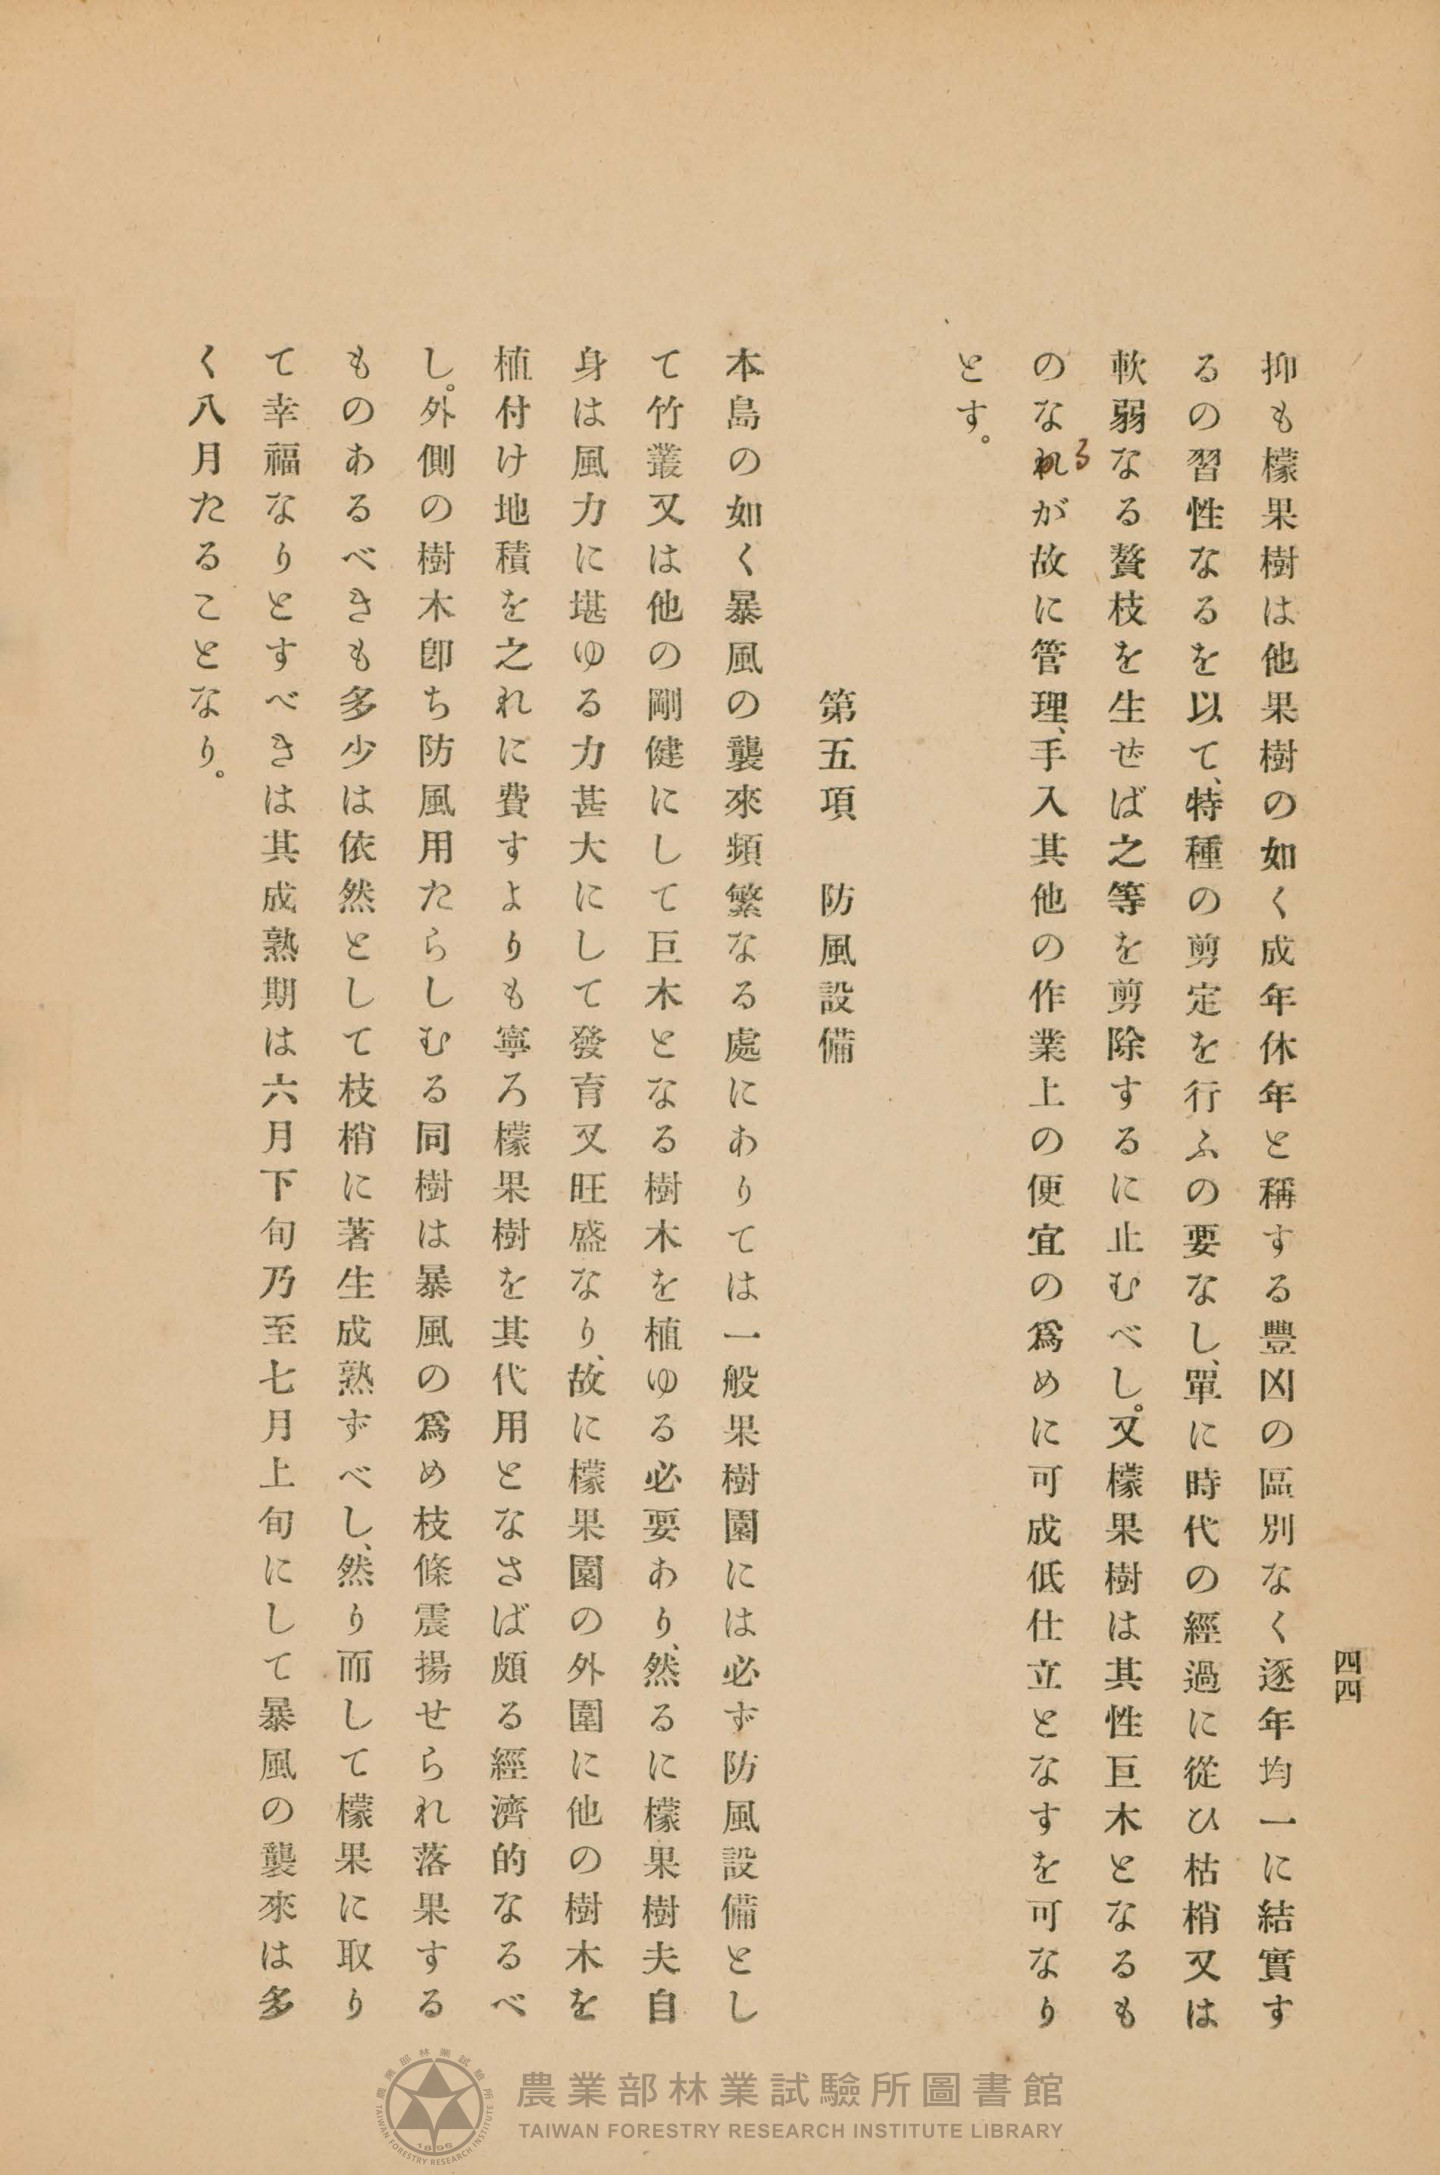 四四
抑も檬果樹は他果樹の如く成年休年と稱する豐凶の區別なく逐年均一に結實す
るの習性なるを以て、特種の剪定を行ふの要なし、單に時代の經過に從ひ枯梢又は
軟弱なる贅枝を生ぜば之等を剪除するに止むべし。又檬果樹は其性巨木となるも
のなれが故に管理、手入其他の作業上の便宜の爲めに可成低仕立となすを可なり
る
とす。
第五項 防風設備
本島の如く暴風の襲來頻繁なる處にありては一般果樹園には必ず防風設備とし
て竹叢又は他の剛健にして巨木となる樹木を植ゆる必要あり、然るに檬果樹夫自
身は風力に堪ゆる力甚大にして發育又旺盛なり、故に檬果園の外圍に他の樹木を
植付け地積を之れに費すよりも寧ろ檬果樹を其代用となさば頗る經濟的なるべ
し。外側の樹木卽ち防風用たらしむる同樹は暴風の爲め枝條震揚せられ落果する
ものあるべきも多少は依然として枝梢に著生成熟ずべし、然り而して檬果に取り
て幸福なりとすべきは其成熟期は六月下旬乃至七月上旬にして暴風の襲來は多
く八月たることなり。
農業部林業試驗所圖書館
TAIWAN FORESTRY RESEARCH INSTITUTE LIBRARY
農業部林業試驗所
TAIWAN FORESTRY RESEARCH INSTITUTE
1896